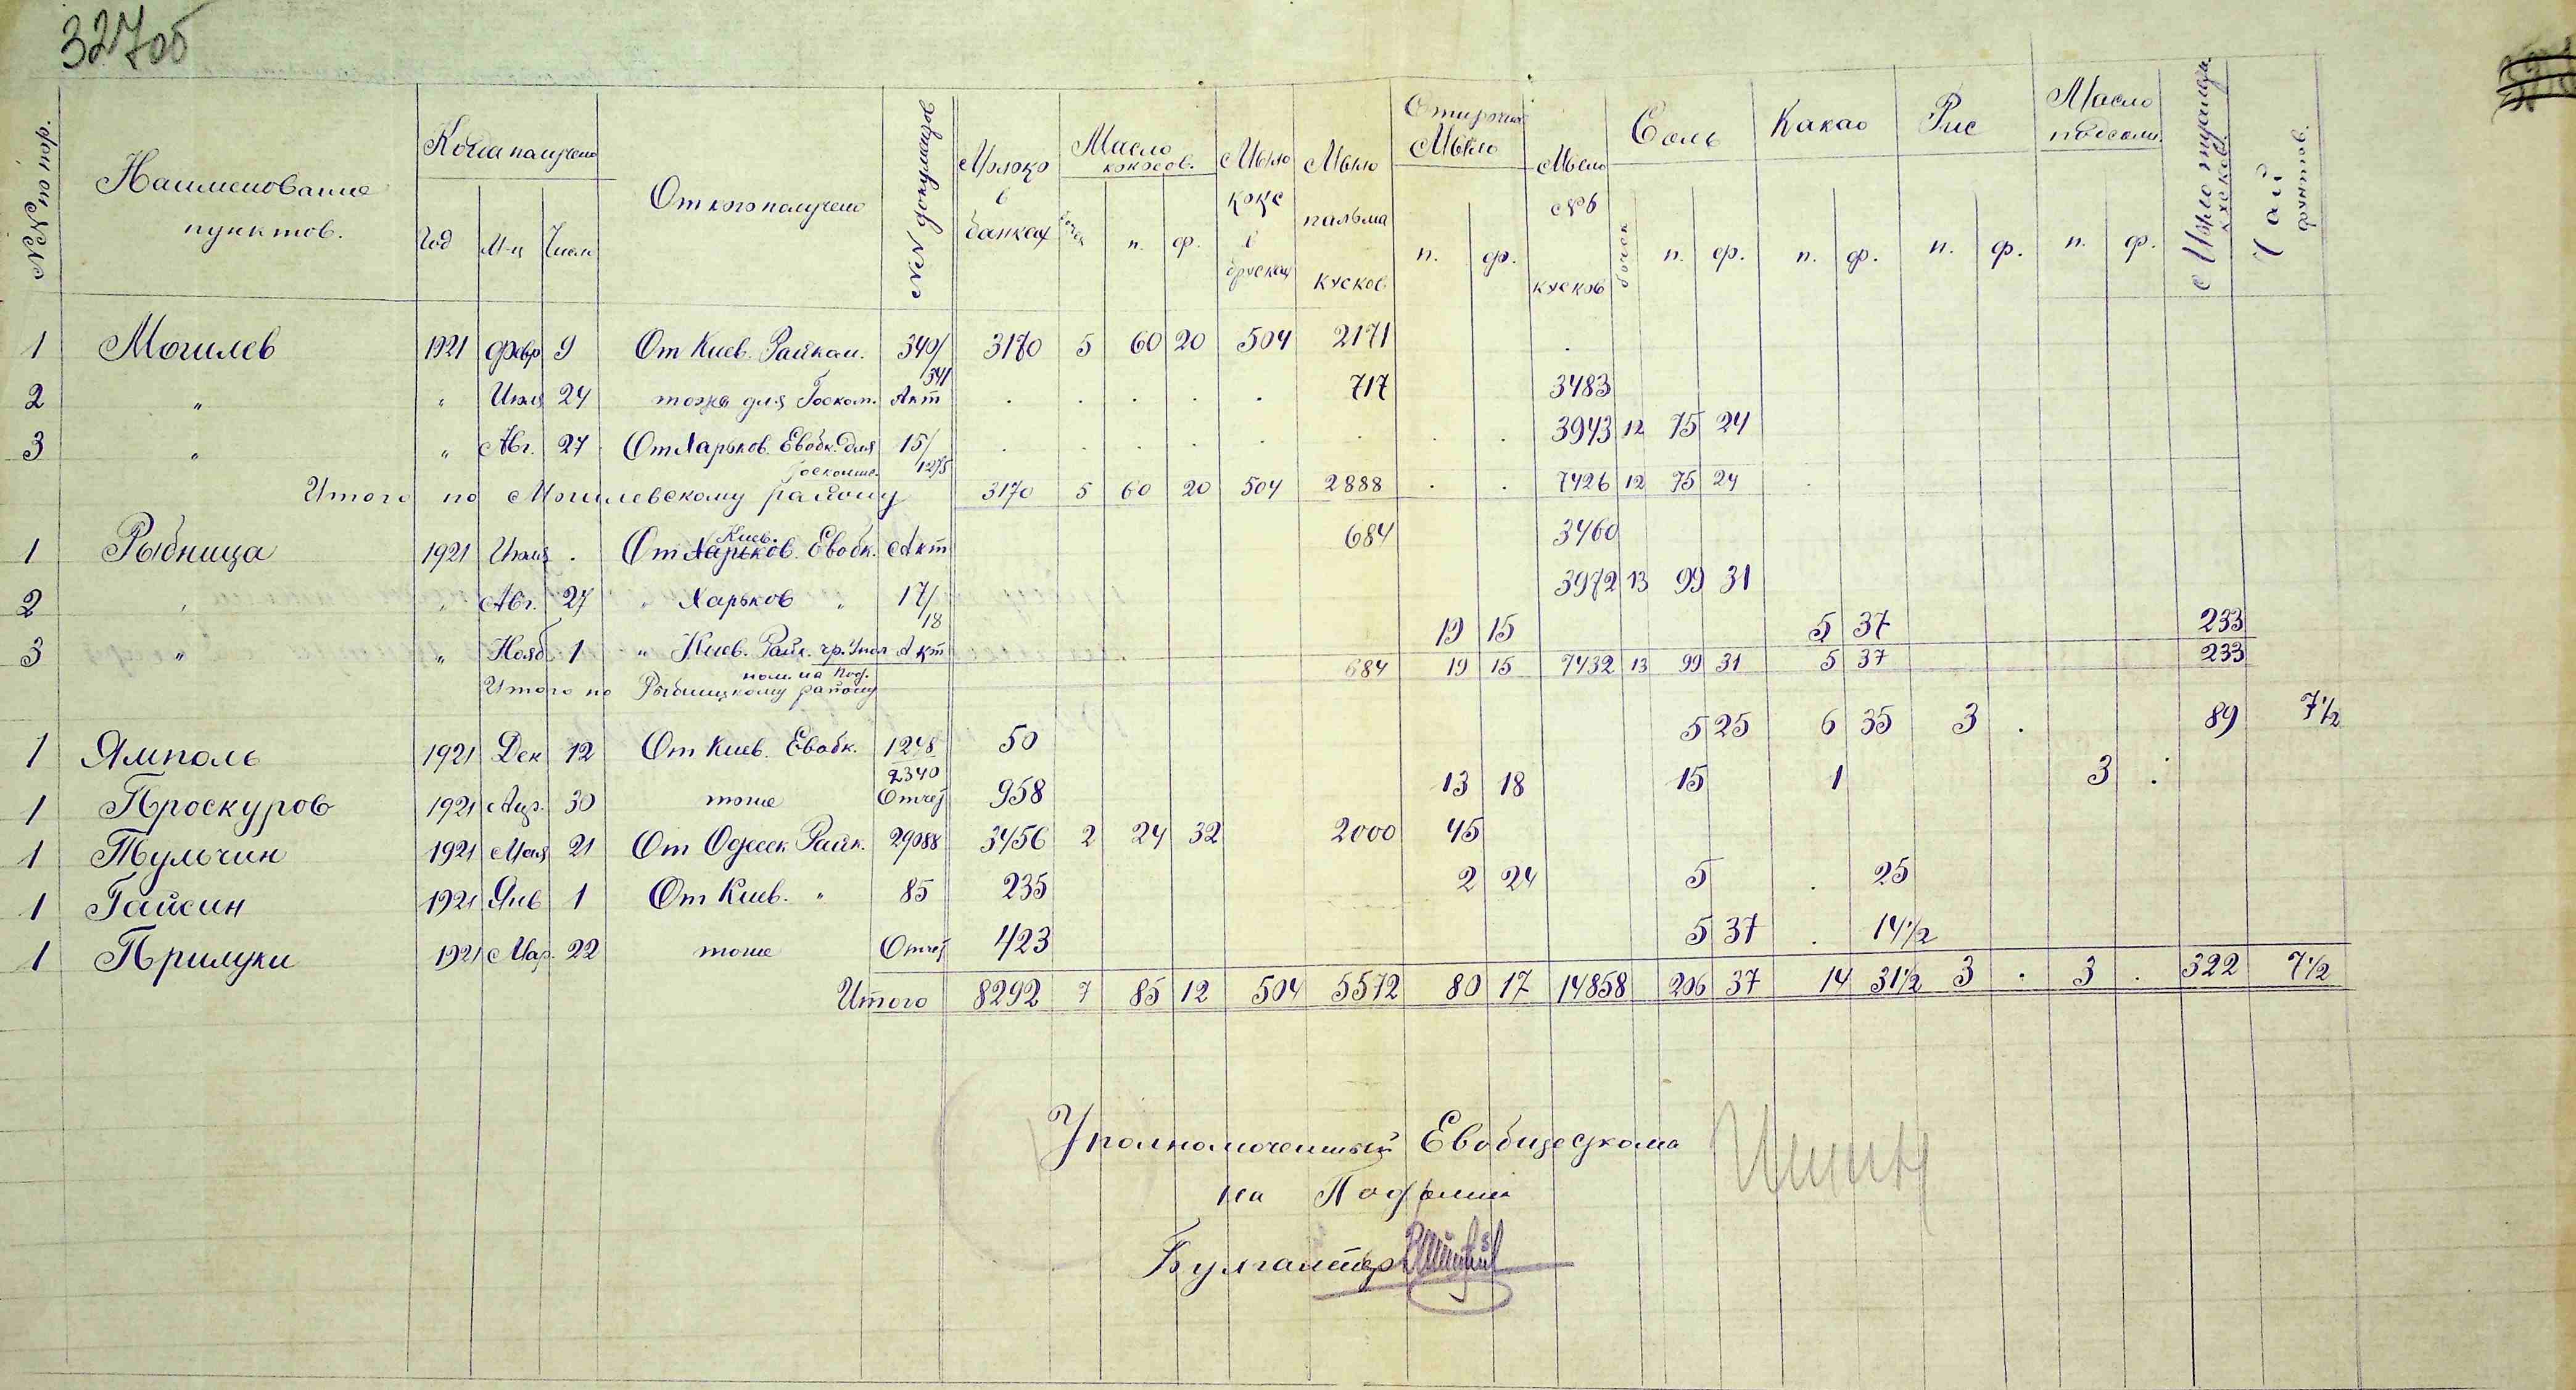 327об
№№ по пор.
Наименование пунктов.
Когда получено
Год М-ц Число
От кого получено
№№ документов
Молоко в банках
Масло кокосов.
бочек п. ф.
Мыло кокс в брусках
Мыло пальма кусков
Стирочн. Мыло
п. ф.
Мыло №6 кусков
Соль
бочек п. ф.
Какао
п. ф.
Рис
п. ф.
Масло подсолн.
п. ф.
Мыло туалетн. кусков
Чай фунтов.
1 Могилев 1921 Февр 9 От Киев. Райком. 340/341 3170 5 60 20 504 2171
2 " " Июля 24 тоже для Госком. Акт 717 3483
3 " " Авг. 27 От Харьков. Евобк. для Госкомис. 15/1275 3943 12 75 24
Итого по Могилевскому району 3170 5 60 20 504 2888 . . 7426 12 75 24
1 Рыбница 1921 Июля . От Харьков. Киев. Евобк. Акт 684 3460
2 " " Авг. 27 " Харьков " 17/18 3972 13 99 31
3 " " Нояб. 1 " Киев. Райк. чр. Упол ном. на Под. Акт 19 15 5 37 233
Итого по Рыбницкому району 684 19 15 7432 13 99 31 5 37 233
1 Ямполь 1921 Дек 12 От Киев. Евобк. 1248 2340 50 5 25 6 35 3 . 89 7½
1 Проскуров 1921 30 тоже Отчет 958 13 18 15 1 3 .
1 Тульчин 1921 Мая 21 От Одесск Райк. 29088 3456 2 24 32 2000 45
1 Гайсин 1921 Янв 1 От Киев. " 85 235 2 24 5 . 25
1 Прилуки 1921 Мар. 22 тоже Отчет 423 5 37 . 14½
Итого 8292 7 85 12 504 5572 80 17 14858 206 37 14 31½ 3 . 3 . 322 7½
Уполномоченный Евобщесткома
на Подолии
Булгалтер